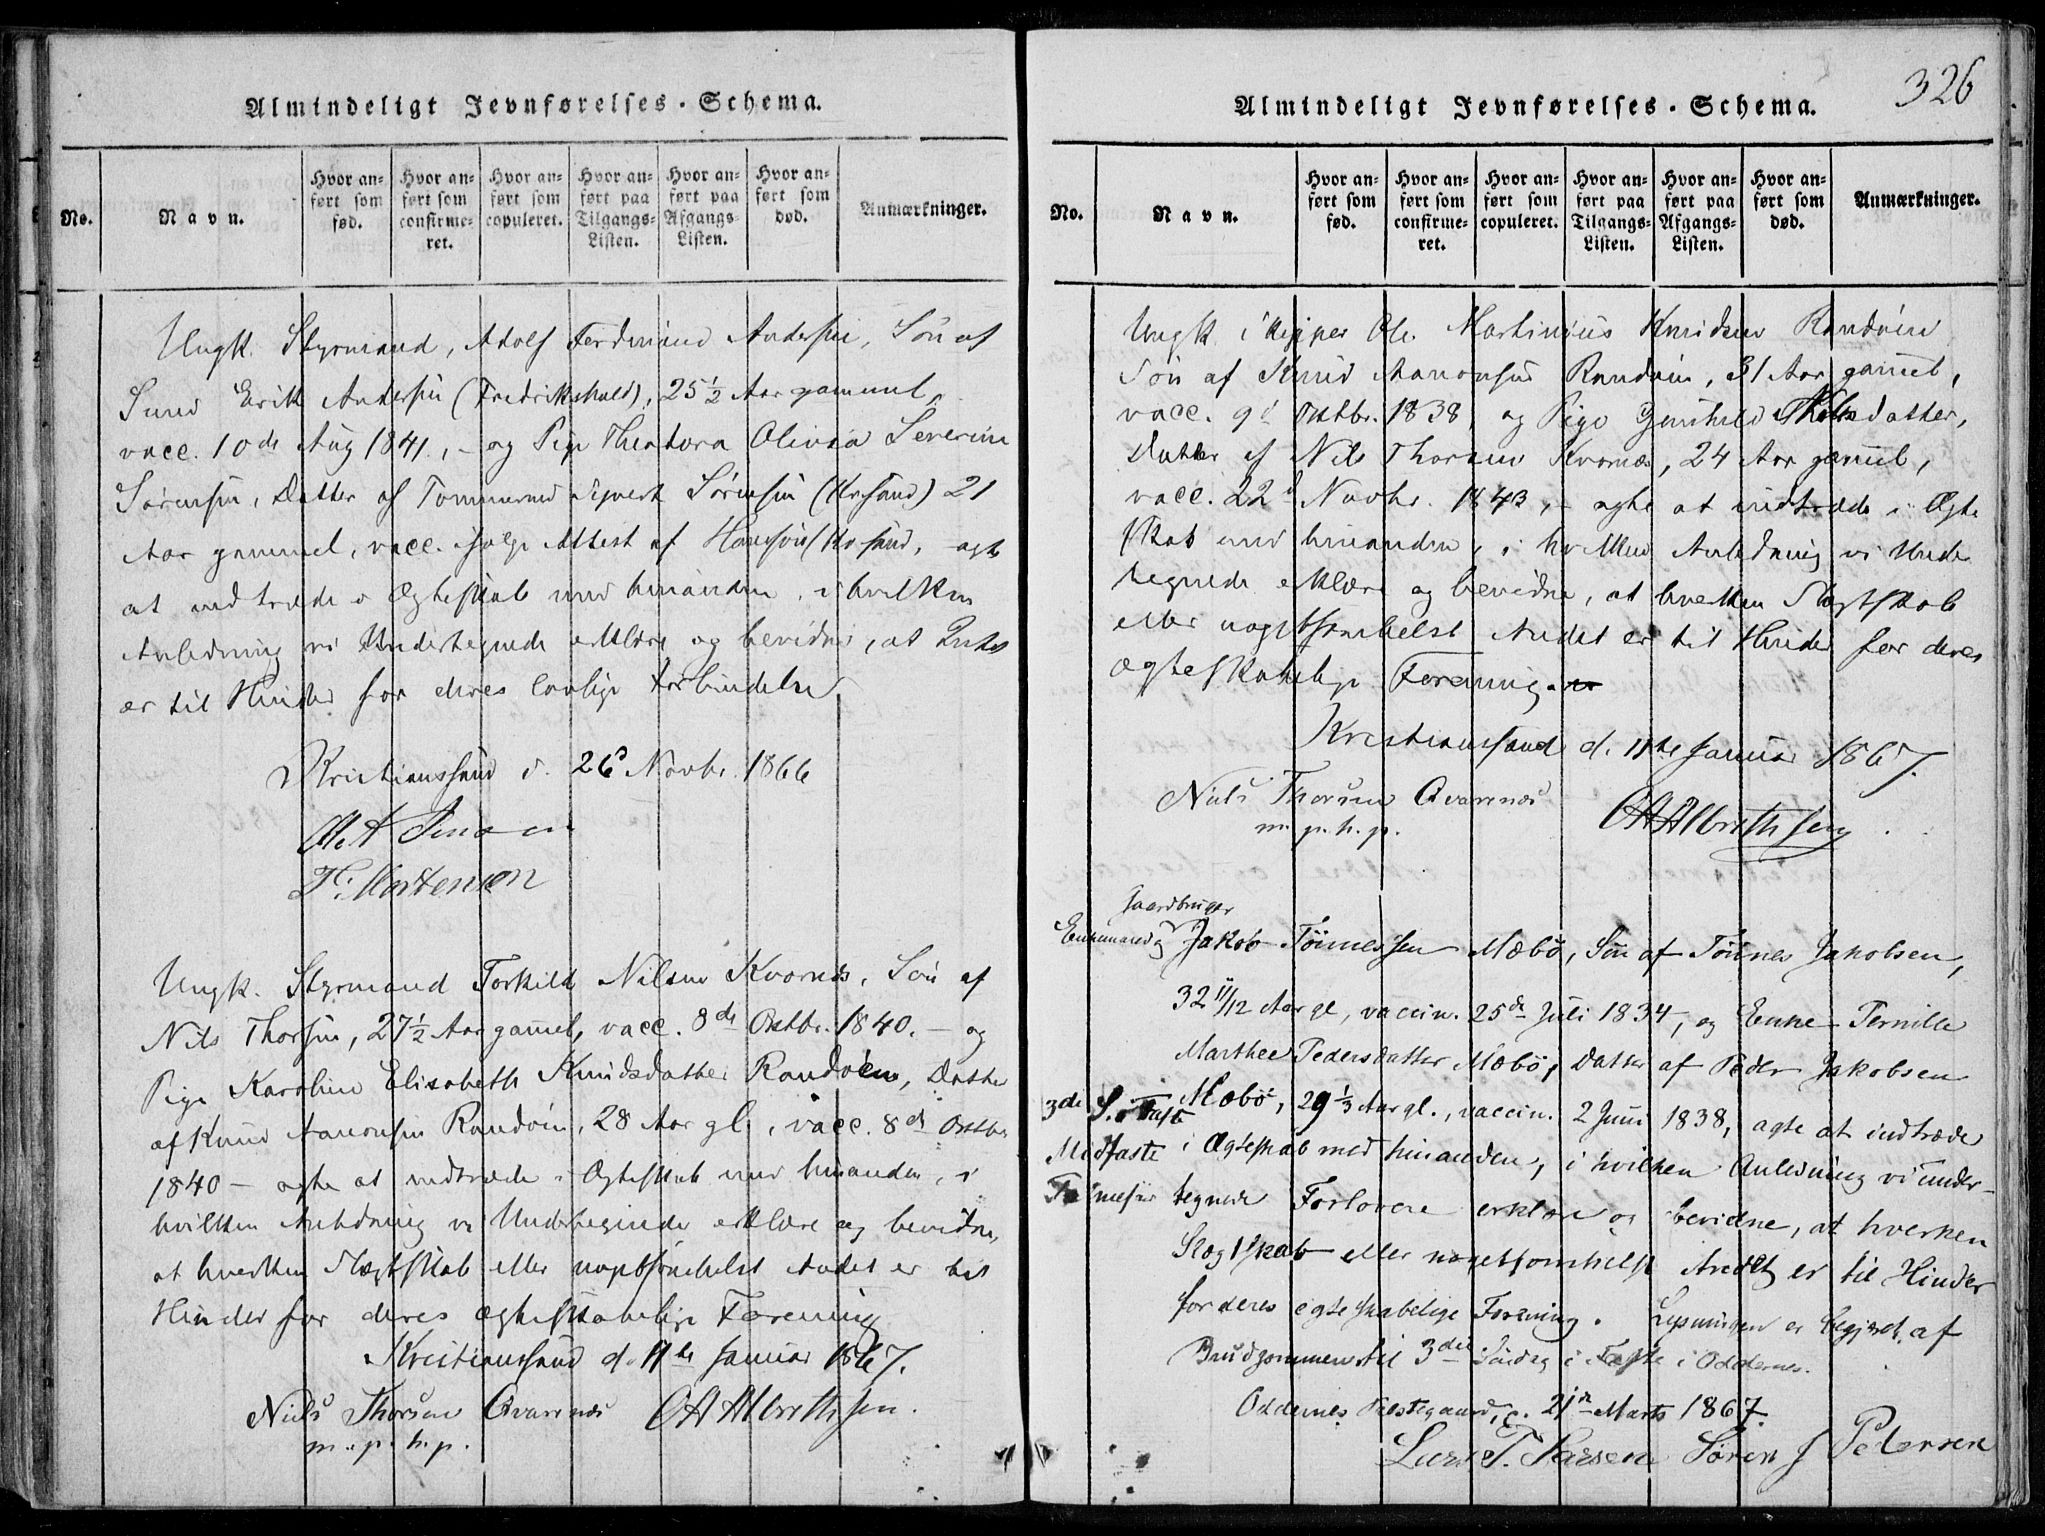 Almindeligt Jevnførelses-Schema.
No.
Navn.
Hvor anført som fød.
Hvor anført som confirmeret.
Hvor anført som copuleret.
Hvor anført paa Tilgangs-Listen.
Hvor anført paa Afgangs-Listen.
Hvor anført som død.
Anmærkninger.
Ungk. Styrmand, Adolf Ferdinand Andersen, Søn af
Erik Andersen (Fredrikshald), 25 1/2 Aar gammel,
vacc. 10de Aug 1841, – og Pige Theodora Olivia Severine
Sørensen, Datter af Tømmermd Sivert Sørensen (Krsand) 21
Aar gammel, vacc. ifølge Attest af Hansson/Krsand, – agte
at indtræde i Ægteskab med hinanden, i hvilken
Anledning vi Undertegnede erklære og bevidne, at Intet
er til Hinder for deres lovlige Forbindelse.
Kristianssand d. 26de Novbr. 1866
T. Mortensen
Ungk. Styrmand Torkild Nilsen Kvarnes, Søn af
Nils Thorsen, 27 1/2 Aar gamel, vacc. 8de Oktbr. 1840. – og
Pige Karoline Elisabeth Knudsdatter Randøen, Datter
af Knud Aanonsen Randøen, 28 Aar gl., vacc. 8de Oktbr
1840 – agte at indtræde i Ægteskab med hinanden, i
hvilken Anledning vi Undertegnede erklære og bevidne,
at hverken Slægtskab eller nogetsomhelst Andet er til
Hinder for deres ægteskabelige Forening
Kristianssand d. 11te Januar 1867.
Niels Thorsen Qvarenæs OAAlbrethsen.
m. p. h. p.
326
Almindeligt Jevnførelses-Schema.
No.
Navn.
Hvor anført som fød.
Hvor anført som confirmeret.
Hvor anført som copuleret.
Hvor anført paa Tilgangs-Listen.
Hvor anført paa Afgangs-Listen.
Hvor anført som død.
Anmærkninger.
Ungk Skipper Ole Martinius Knudsen Randøen
Søn af Knud Aanonsen Randøen, 31 Aar gamel,
vacc. 9d Oktbr. 1838, og Pige Gunhild Nilsdatter,
Datter af Nils Thorsen Kvarnes, 24 Aar gamel,
vacc. 22d Novbr. 1843, – agte at indtræde i Ægte
skab med hinanden, i hvilken Anledning vi Under
tegnede erklære og bevidne, at hverken Slægtskab
eller nogetsomhelst Andet er til Hinder for deres
ægteskabelige Forening.
Kristianssand d. 11te Januar 1867.
Niels Thorsen Qvarenæs OAAlbrethsen
m. p. h. p.
Gaardbruger
Enkemand og Jakob Tönnessen Mæbø, Søn af Tönnes Jakobsen,
32 11/12 Aar gl, vaccin. 25de Juli 1834, og Enke Pernille
Marthea Pedersdatter Mæbø, Datter af Peder Jakobsen
3die S. i Faste
Mæbø, 29 1/3 Aar gl., vaccin. 2 Juni 1838, agte at indtræde
Midfaste
i Ægteskab med hinanden, i hvilken Anledning vi under-
tegnede Forlovere erklære og bevidne, at hverken
Slægtskab eller nogetsomhelst Andet er til Hinder
for deres egteskabelige Forening. Lysningen er begjært af
Brudgommen til 3die Søndag i Faste i Oddernes.
Oddernes Præstegaard, d. 21de Marts 1867.
Lars T. Larsen Søren J Pedersen